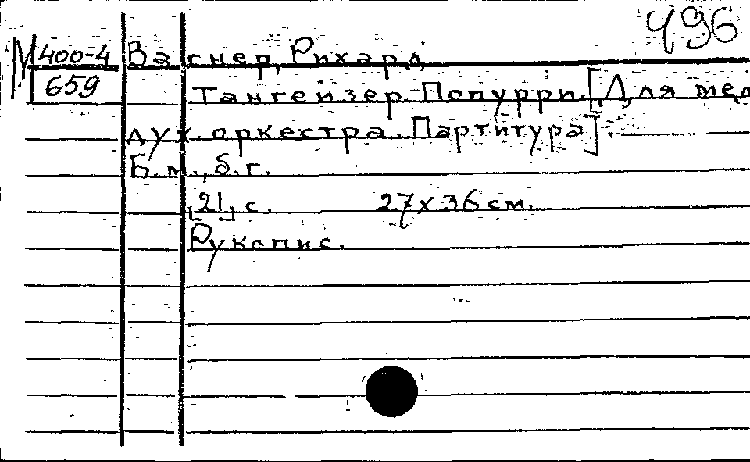 496
М 400-4 Вагнер, Рихард
659 Тангейзер. Попурри. [Для мед
дух. оркестра. Партитура].
Б.м., б.г.
[21] с. 27х36 см.
Рукопис.